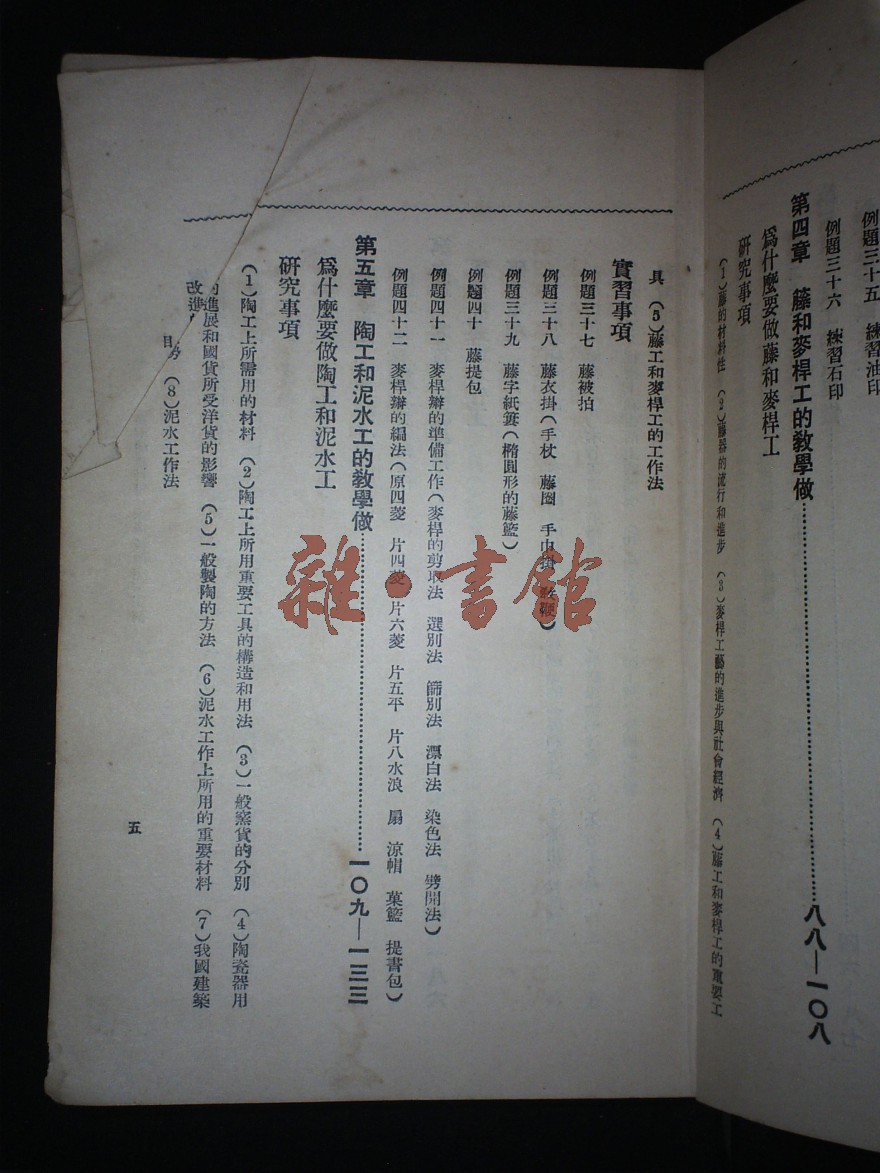 例題三十五　練習油印
例題三十六　練習石印
第四章　藤和麥桿工的教學做……八八—一〇八
爲什麼要做藤和麥桿工
研究事項
（1）藤的材料性　（2）藤器的流行和進步　（3）麥桿工藝的進步與社會經濟　（4）藤工和麥桿工的重要工
具　（5）藤工和麥桿工的工作法
實習事項
例題三十七　藤被拍
例題三十八　藤衣掛（手杖　藤圈　手巾掛　鞭）
例題三十九　藤字紙簍（橢圓形的藤籃）
例題四十　藤提包
例題四十一　麥桿辮的準備工作（麥桿的剪取法　選別法　篩別法　漂白法　染色法　劈開法）
例題四十二　麥桿辮的編法（原四菱　片四菱　片六菱　片五平　片八水浪　扇　涼帽　菓籃　提書包）
第五章　陶工和泥水工的教學做……一〇九—一三三
爲什麼要做陶工和泥水工
研究事項
（1）陶工上所需用的材料　（2）陶工上所用重要工具的構造和用法　（3）一般窰貨的分別　（4）陶瓷器用
的進展和國貨所受洋貨的影響　（5）一般製陶的方法　（6）泥水工作上所用的重要材料　（7）我國建築
改進　（8）泥水工作法
目
五
雜·書館